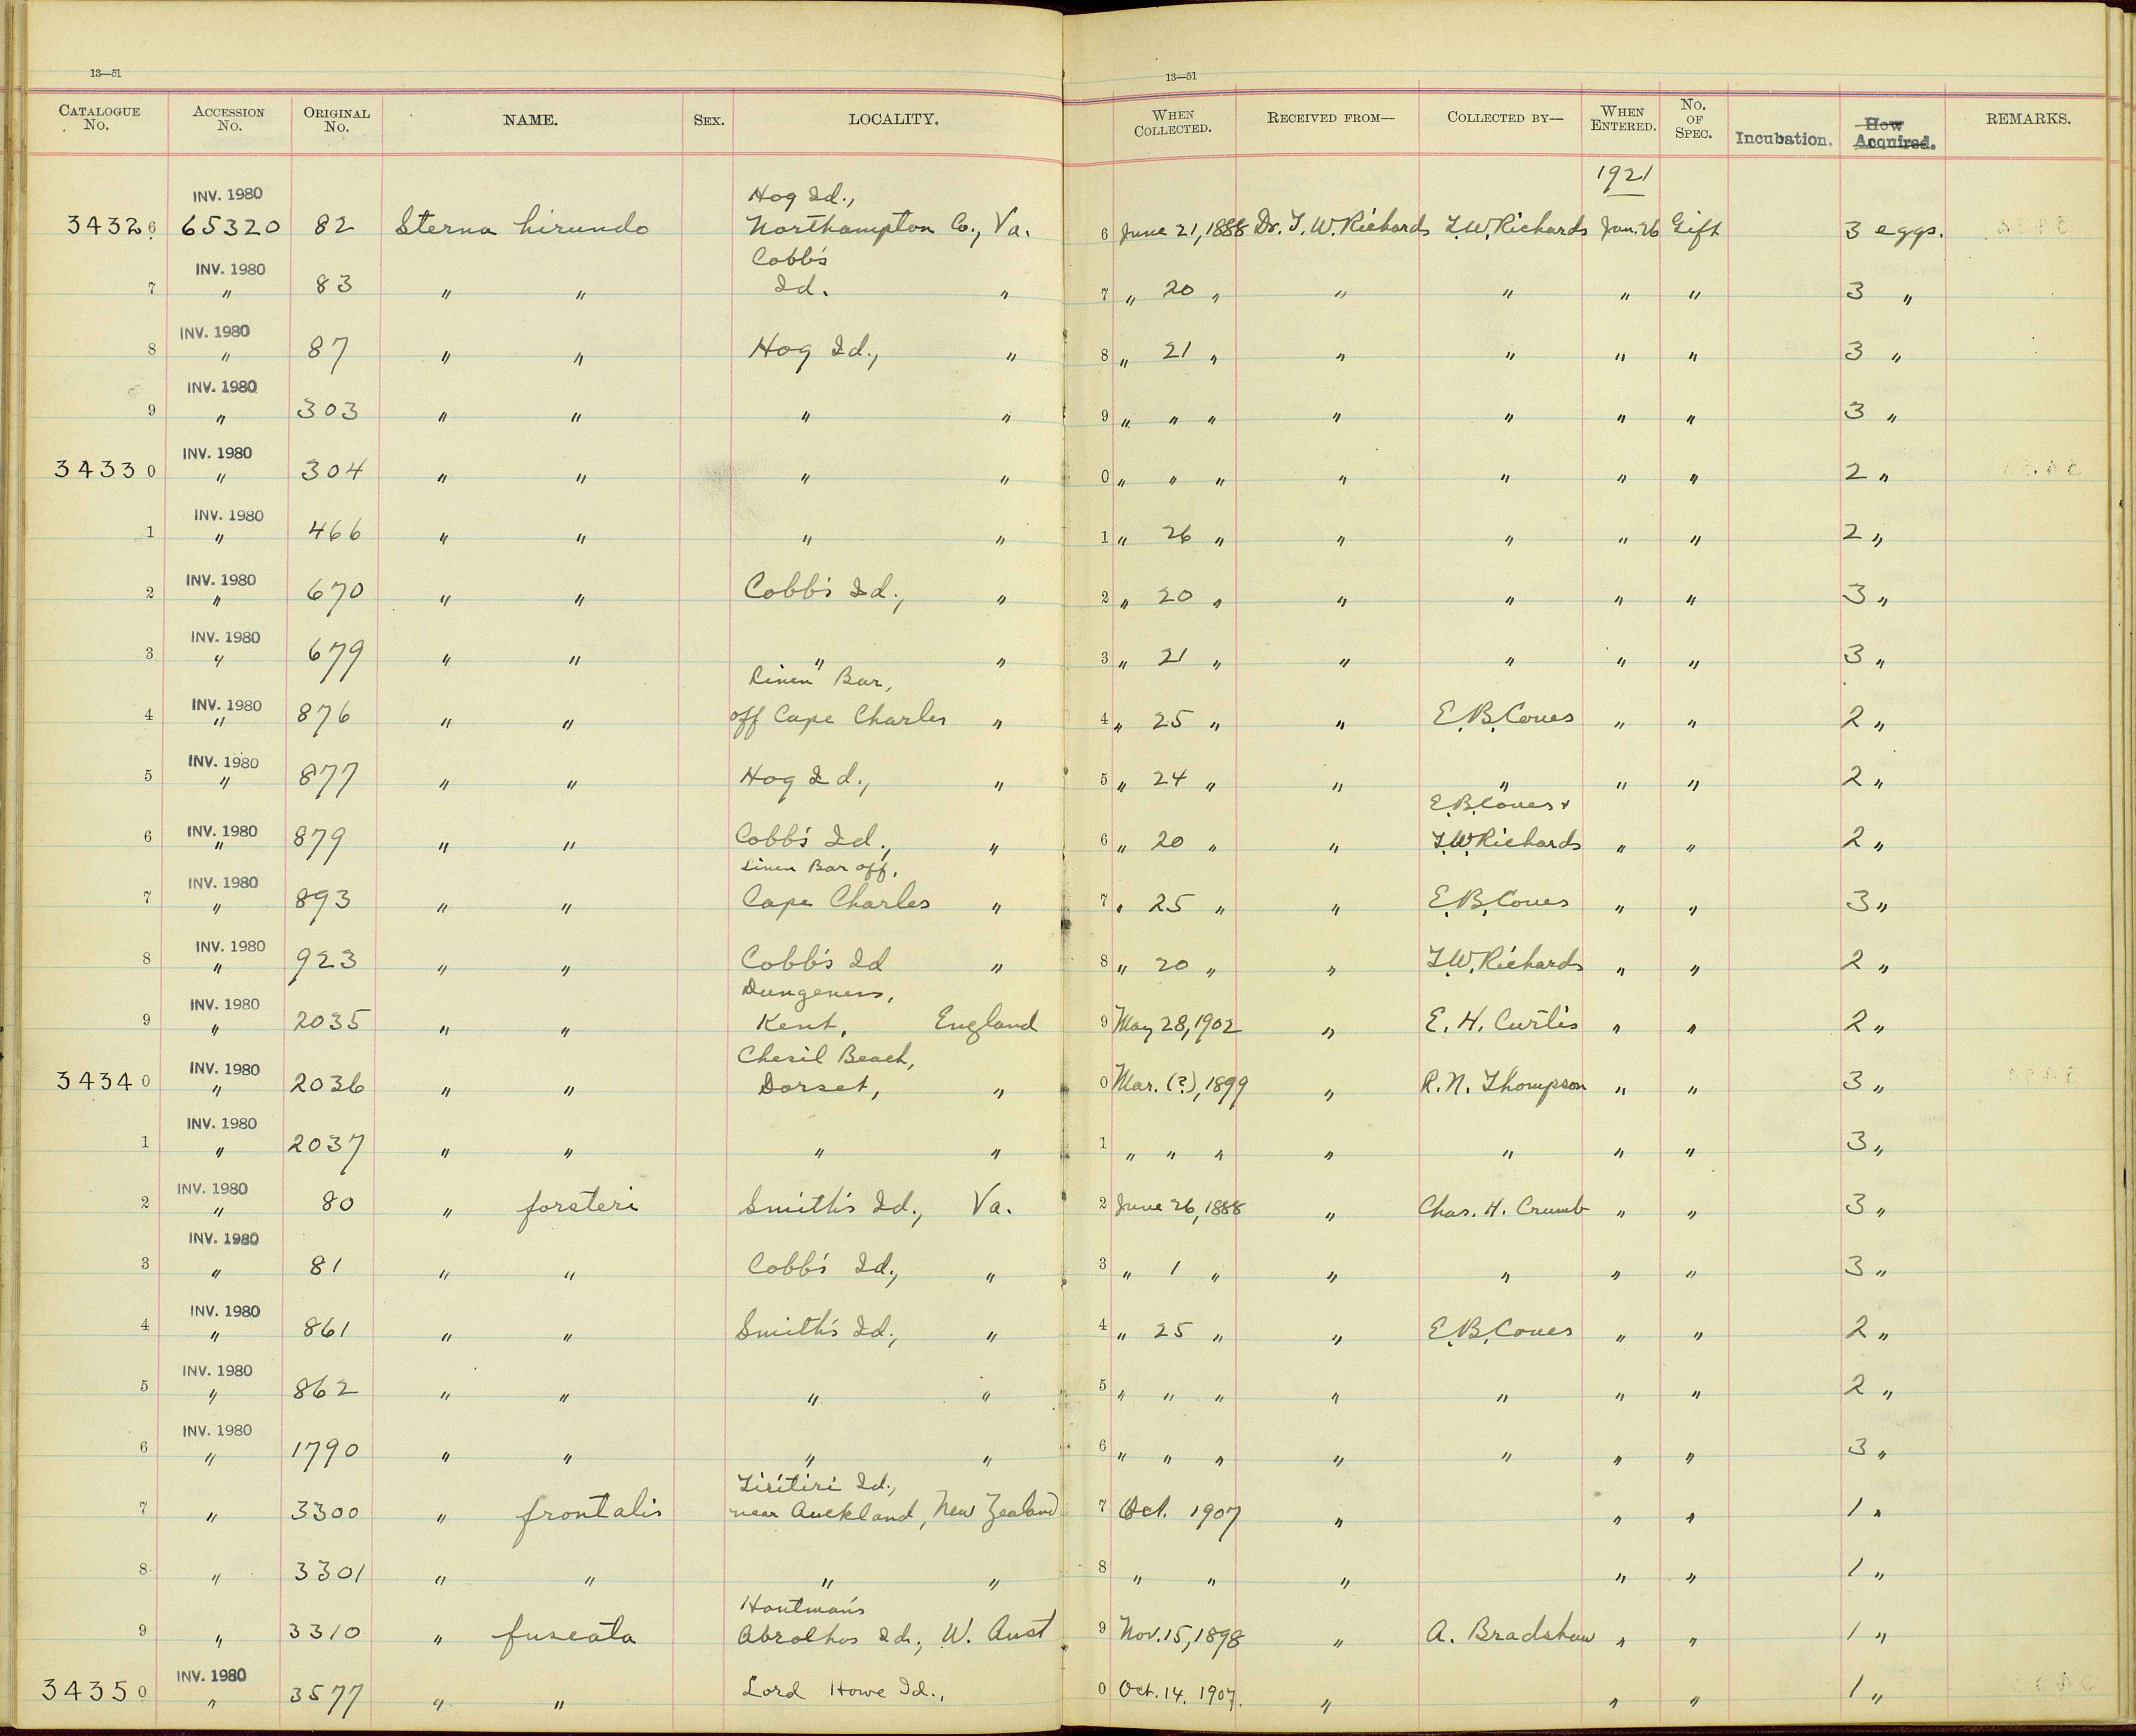 13—51
13—51
CATALOGUE No. ACCESSION No. ORIGINAL No. NAME. SEX. LOCALITY. WHEN COLLECTED. RECEIVED FROM— COLLECTED BY— WHEN ENTERED. No. OF SPEC. Incubation. How Acquired. REMARKS.
1921
INV. 1980 Hog Id.,
34326 65320 82 Sterna hirundo Northampton Co., Va. 6 June 21, 1888 Dr. T. W. Richards T. W. Richards Jan. 26 Gift 3 eggs.
INV. 1980 Cobb's
7 " 83 " " Id. " 7 " 20 " " " " " 3 "
INV. 1980
8 " 87 " " Hog Id., " 8 " 21 " " " " " 3 "
INV. 1980
9 " 303 " " " " 9 " " " " " " " 3 "
INV. 1980
34330 " 304 " " " " 0 " " " " " " " 2 "
INV. 1980
1 " 466 " " " " 1 " 26 " " " " " 2 "
INV. 1980
2 " 670 " " Cobb's Id., " 2 " 20 " " " " " 3 "
INV. 1980
3 " 679 " " " " 3 " 21 " " " " " 3 "
INV. 1980 Linen Bar,
4 " 876 " " off Cape Charles " 4 " 25 " " E. B. Coues " " 2 "
INV. 1980
5 " 877 " " Hog Id., " 5 " 24 " " " " " 2 "
E. B. Coues +
INV. 1980
6 " 879 " " Cobb's Id., " 6 " 20 " " T. W. Richards " " 2 "
INV. 1980 Linen Bar off,
7 " 893 " " Cape Charles " 7 " 25 " " E. B. Coues " " 3 "
INV. 1980
8 " 923 " " Cobb's Id " 8 " 20 " " T. W. Richards " " 2 "
INV. 1980 Dungeness,
9 " 2035 " " Kent, England 9 May 28, 1902 " E. H. Curtis " " 2 "
INV. 1980 Chesil Beach,
34340 " 2036 " " Dorset, " 0 Mar. (?), 1899 " R. N. Thompson " " 3 "
INV. 1980
1 " 2037 " " " " 1 " " " " " " " 3 "
INV. 1980
2 " 80 " forsteri Smith's Id., Va. 2 June 26, 1888 " Chas. H. Crumb " " 3 "
INV. 1980
3 " 81 " " Cobb's Id., " 3 " 1 " " " " " 3 "
INV. 1980
4 " 861 " " Smith's Id., " 4 " 25 " " E. B. Coues " " 2 "
INV. 1980
5 " 862 " " " " 5 " " " " " " " 2 "
INV. 1980
6 " 1790 " " " " 6 " " " " " " " 3 "
Tiritiri Id.,
7 " 3300 " frontalis near Auckland, New Zealand 7 Oct. 1907 " " " 1 "
8 " 3301 " " " " 8 " " " " " 1 "
Houtman's
9 " 3310 " fuscata Abrolhos Id., W. Aust 9 Nov. 15, 1898 " A. Bradshaw " " 1 "
INV. 1980
34350 " 3577 " " Lord Howe Id., 0 Oct. 14. 1907. " " " 1 "